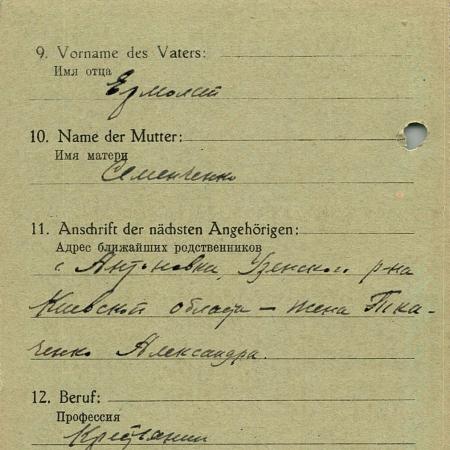 9. Vorname des Vaters:
Имя отца
Ермолай
10. Name der Mutter:
Имя матери
Семенченко
11. Anschrift der nächsten Angehörigen:
Адрес ближайших родственников
с. Антоновка, Узенского р-на
Киевской области – жена Тка-
ченко Александра.
12. Beruf:
Профессия
Крестьянин